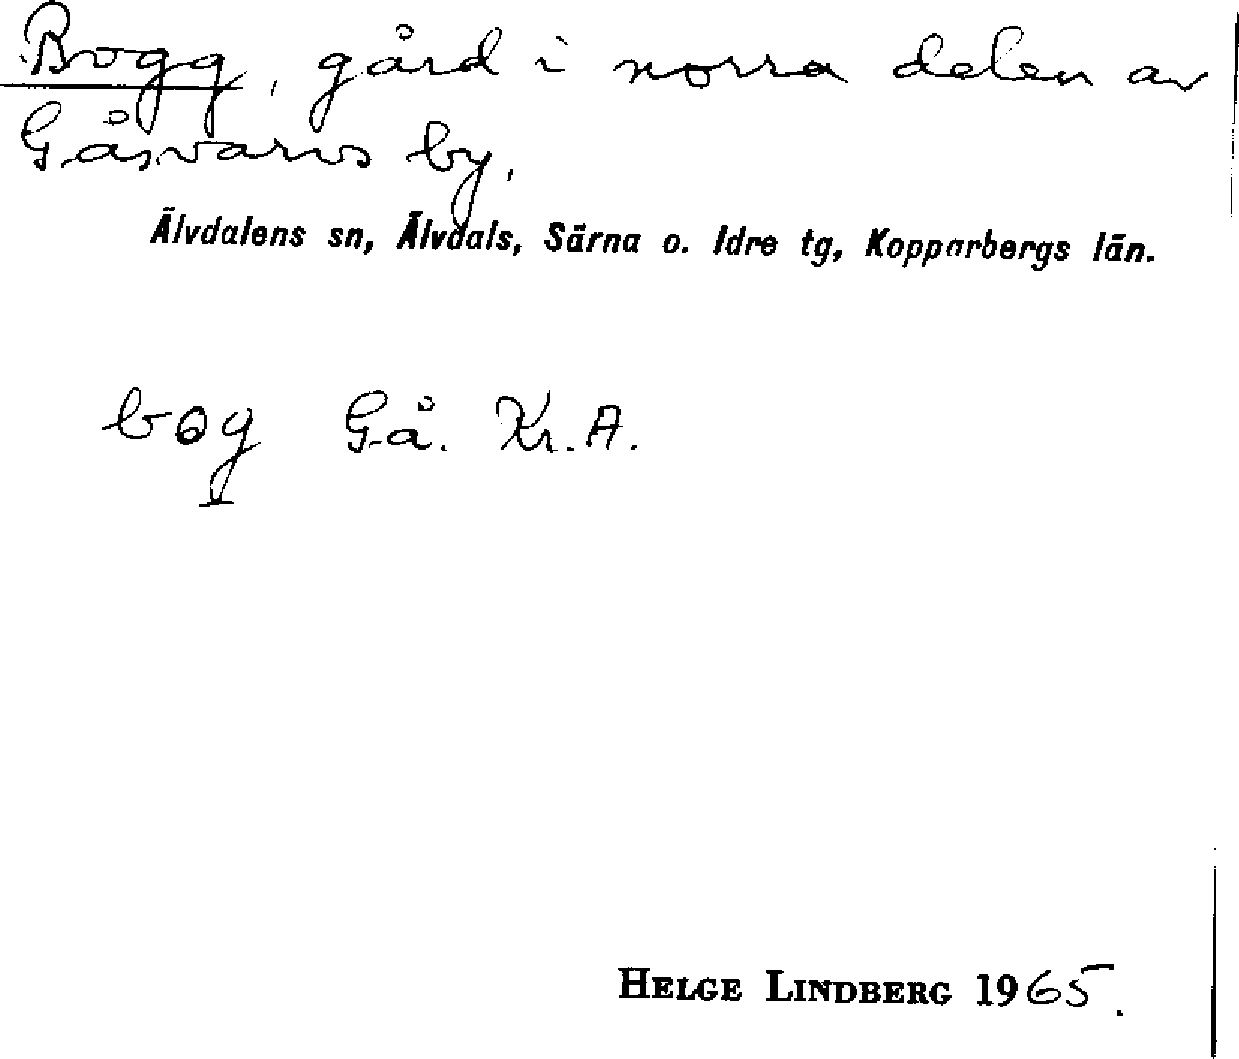 Bogg, gård i norra delen av
Gåsvarvs by.
Älvdalens sn, Älvdals, Särna o. Idre tg, Kopparbergs län.
bog Gå. Kr. A.
HELGE LINDBERG 1965.